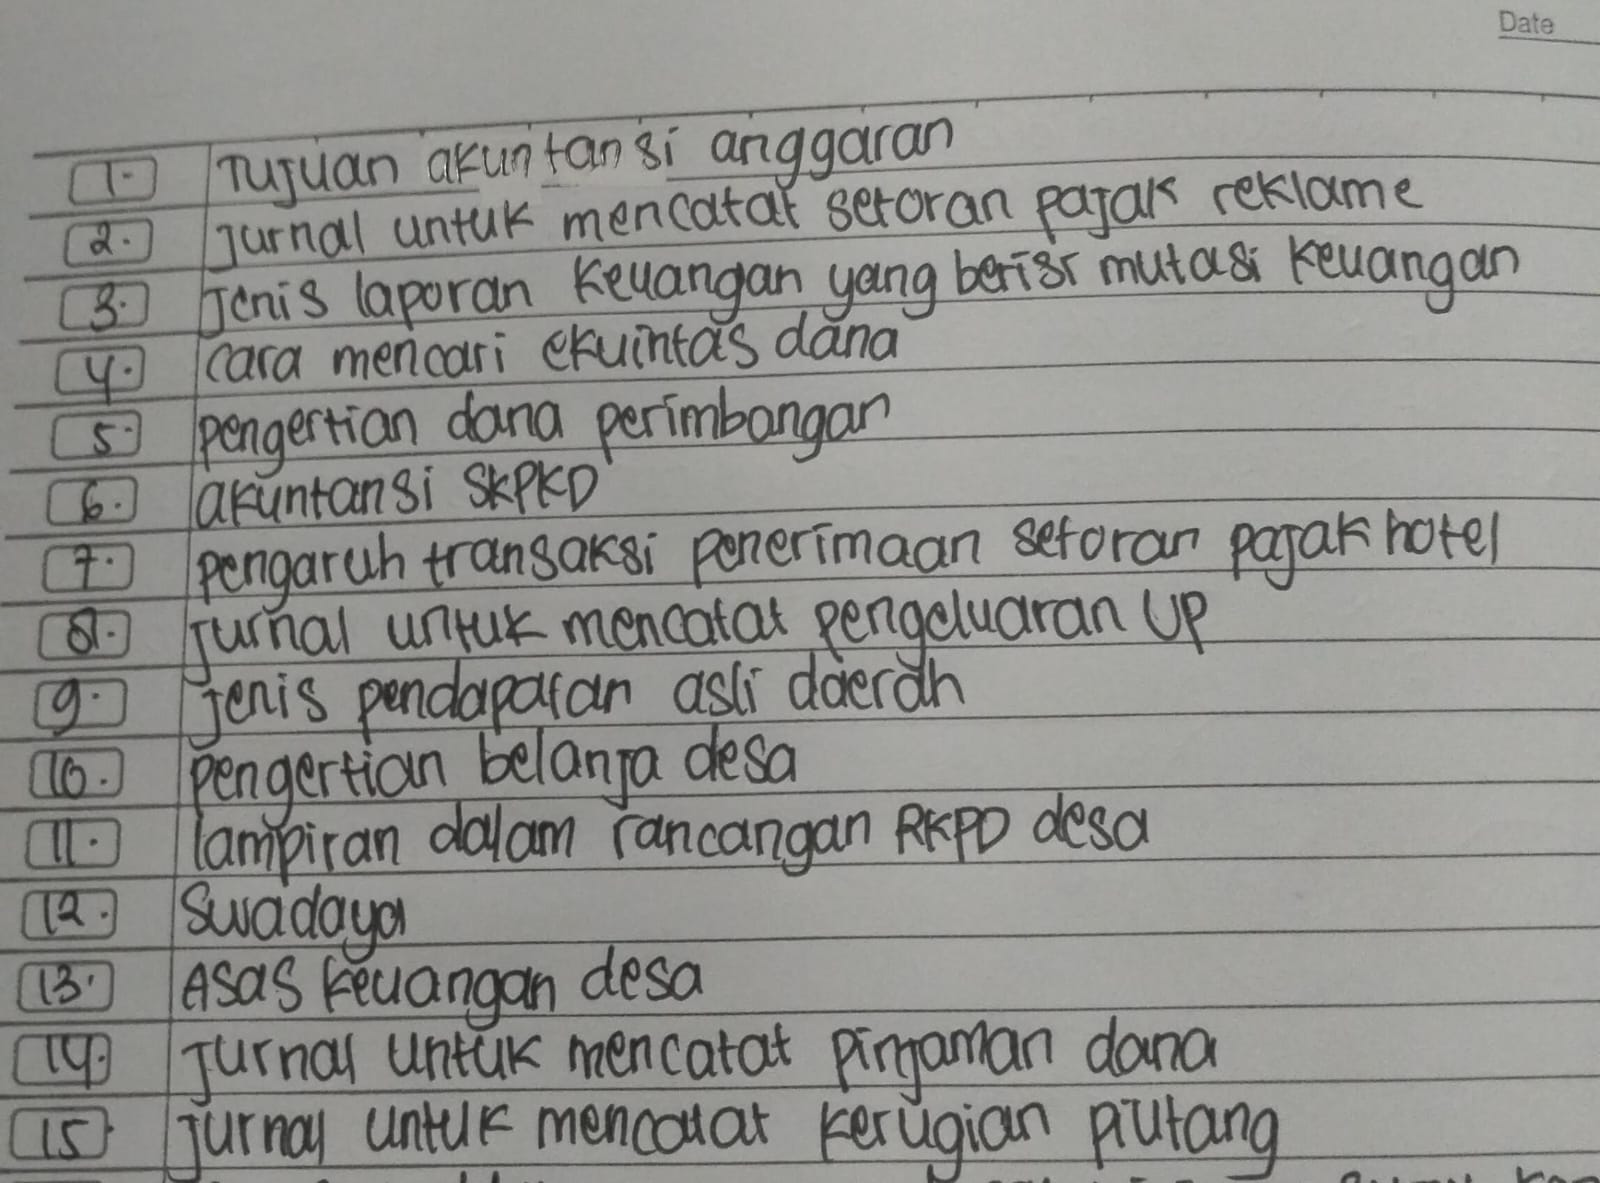 Date
1. Tujuan akuntansi anggaran
2. jurnal untuk mencatat setoran pajak reklame
3. jenis laporan keuangan yang berisi mutasi keuangan
4. cara mencari ekuintas dana
5. pengertian dana perimbangan
6. akuntansi SKPKD
7. pengaruh transaksi penerimaan setoran pajak hotel
8. jurnal untuk mencatat pengeluaran UP
9. jenis pendapatan asli daerah
10. pengertian belanja desa
11. lampiran dalam rancangan RKPD desa
12. Swadaya
13. Asas keuangan desa
14. jurnal untuk mencatat pinjaman dana
15 jurnal untuk mencatat kerugian piutang